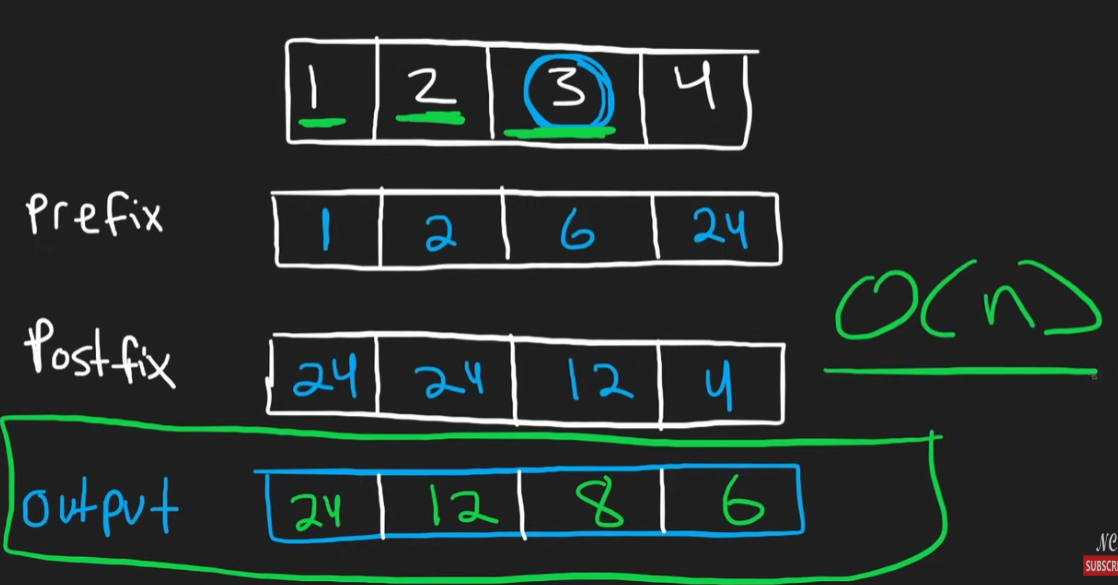 1 2 3 4
Prefix 1 2 6 24
O(n)
Postfix 24 24 12 4
output 24 12 8 6
NC
SUBSCR